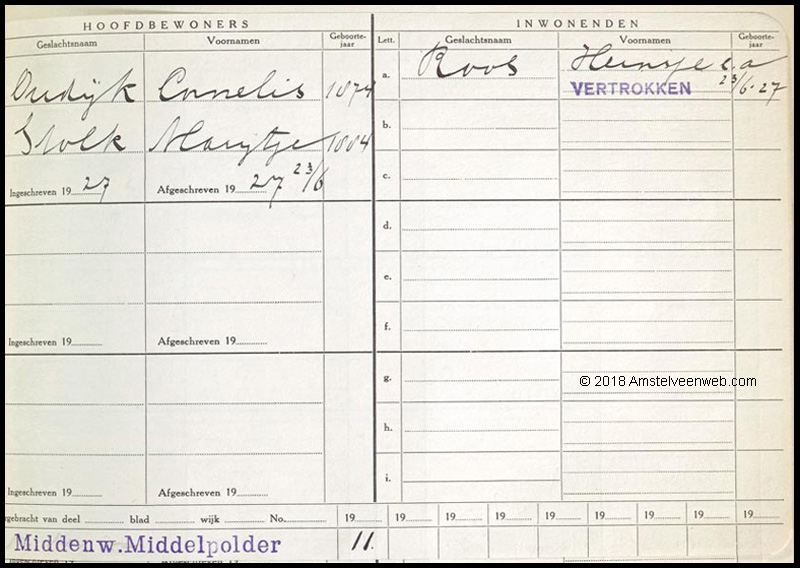 HOOFDBEWONERS
Geslachtsnaam Voornamen Geboorte-jaar
Oudijk Cornelis 1874
Stolk Marijtje 1884
Ingeschreven 19 27 Afgeschreven 19 27 23/6
Ingeschreven 19 Afgeschreven 19
Ingeschreven 19 Afgeschreven 19
INWONENDEN
Lett. Geslachtsnaam Voornamen Geboorte-jaar
a. Roos Heinsje c.a
VERTROKKEN 23/6-27
b.
c.
d.
e.
f.
g.
© 2018 Amstelveenweb.com
h.
i.
gebracht van deel blad wijk No. 19 19 19 19 19 19 19 19 19
Middenw. Middelpolder 11.